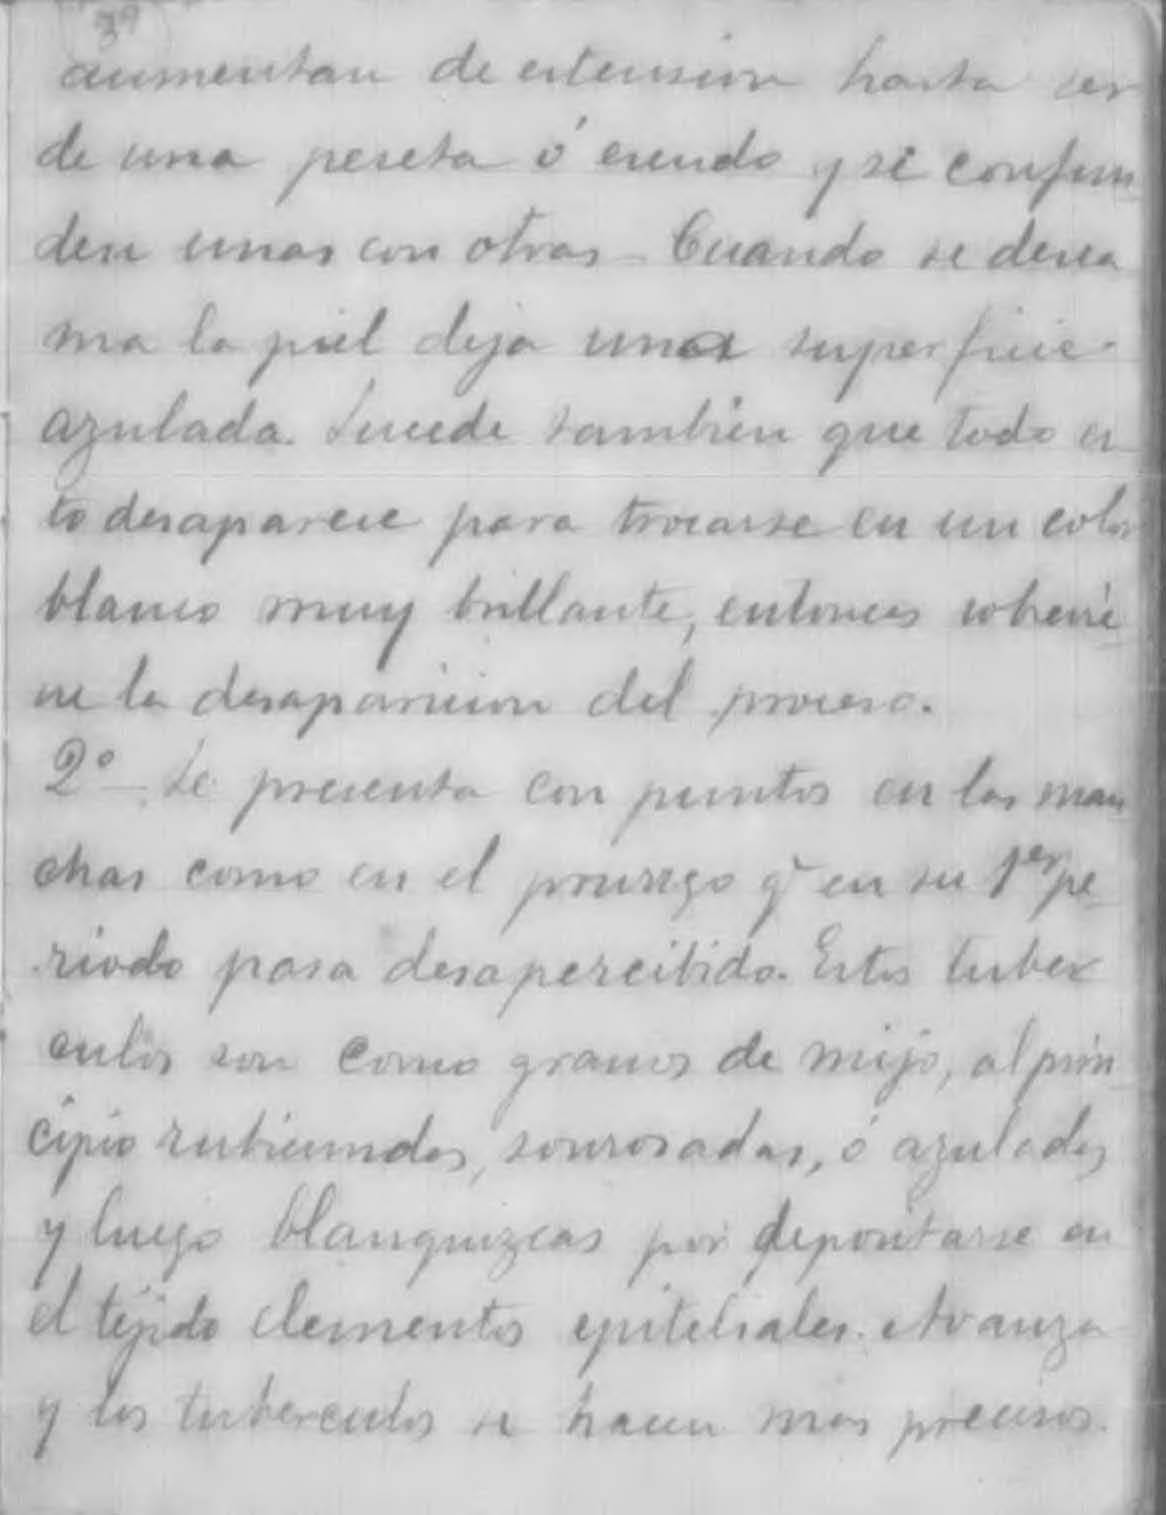 39
aumentan de estension hasta ser
de una peseta ó escudo y se confun
den unas con otras - Cuando se desca
ma la piel deja una superficie
azulada. Sucede tambien que todo es
to desaparece para trocarse en un color
blanco muy brillante, entonces sobrevie
ne la desaparicion del proceso.
2º - Se presenta con puntos en las man
chas como en el prurigo q en su 1er pe
riodo pasa desapercibido. Estos tuber
culos son como granos de mijo, al prin
cipio rubicundos, sonrosadas, ó azulados
y luego blanquizcas por depositarse en
el tejido elementos epiteliales. Avanza
y los tuberculos se hacen mas precisos.